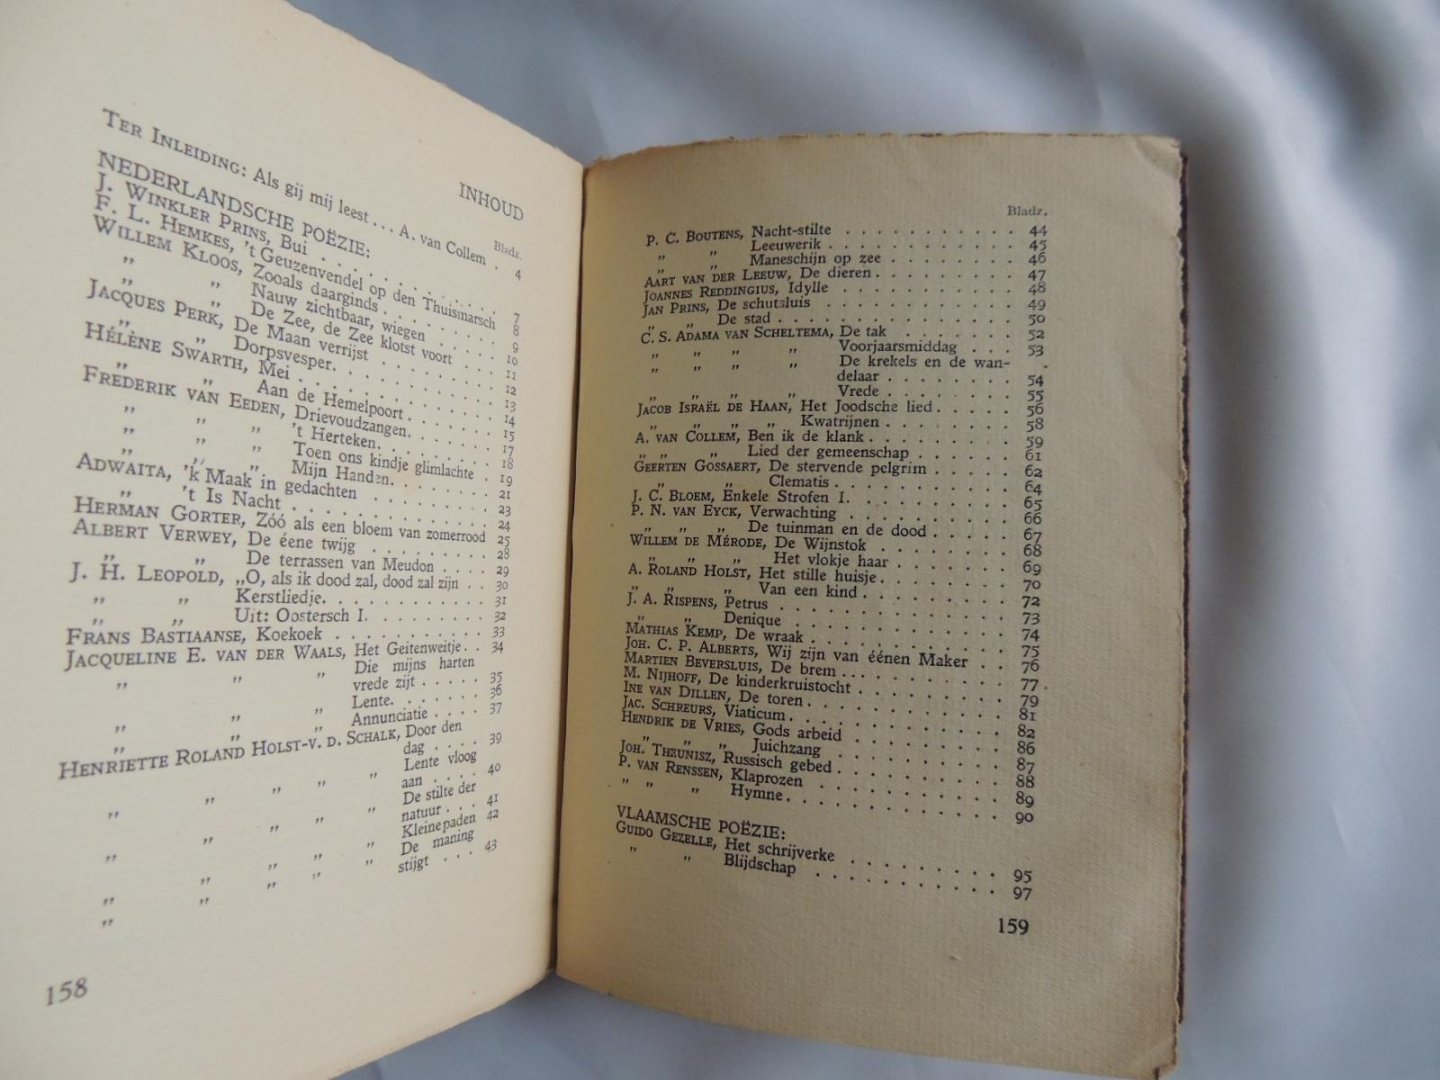 INHOUD
Bladz.
TER INLEIDING: Als gij mij leest . . . A. van Collem . 4
NEDERLANDSCHE POËZIE:
J. WINKLER PRINS, Bui . . . . . . . . . 7
F. L. HEMKES, 't Geuzenvendel op den Thuismarsch 8
WILLEM KLOOS, Zooals daarginds . . . . . . 9
„ „ Nauw zichtbaar, wiegen . . . . 10
„ „ De Zee, de Zee klotst voort . . . 11
JACQUES PERK, De Maan verrijst . . . . . . 12
„ „ Dorpsvesper. . . . . . . . . 13
HÉLÈNE SWARTH, Mei . . . . . . . . . 14
„ „ Aan de Hemelpoort . . . . . . 15
FREDERIK VAN EEDEN, Drievoudzangen. . . . . 17
„ „ „ 't Herteken. . . . . . . 18
„ „ „ Toen ons kindje glimlachte . 19
„ „ „ Mijn Handen. . . . . . 21
ADWAITA, 'k Maak in gedachten . . . . . . . 23
„ 't Is Nacht . . . . . . . . . . 24
HERMAN GORTER, Zóó als een bloem van zomerrood 25
ALBERT VERWEY, De éene twijg . . . . . . . 28
„ „ De terrassen van Meudon . . . 29
J. H. LEOPOLD, „O, als ik dood zal, dood zal zijn . 30
„ „ Kerstliedje. . . . . . . . . . 31
„ „ Uit: Oostersch I. . . . . . . . 32
FRANS BASTIAANSE, Koekoek . . . . . . . . 33
JACQUELINE E. VAN DER WAALS, Het Geitenweitje. . 34
„ „ „ Die mijns harten
vrede zijt . . . . . 35
„ „ „ Lente. . . . . . . 36
„ „ „ Annunciatie . . . . 37
HENRIETTE ROLAND HOLST-V. D. SCHALK, Door den
dag . . . . 39
„ „ „ „ Lente vloog
aan . . . . 40
„ „ „ „ De stilte der
natuur . . . 41
„ „ „ „ Kleine paden 42
„ „ „ „ De maning
stijgt . . . 43
158
Bladz.
P. C. BOUTENS, Nacht-stilte . . . . . . . . . . 44
„ „ Leeuwerik . . . . . . . . . . 45
„ „ Maneschijn op zee . . . . . . . 46
AART VAN DER LEEUW, De dieren . . . . . . . . 47
JOANNES REDDINGIUS, Idylle . . . . . . . . . . 48
JAN PRINS, De schutsluis . . . . . . . . . . . 49
„ „ De stad . . . . . . . . . . . . . 50
C. S. ADAMA VAN SCHELTEMA, De tak . . . . . . 52
„ „ „ „ Voorjaarsmiddag . . . 53
„ „ „ „ De krekels en de wan-
delaar . . . . . . . . 54
„ „ „ „ Vrede . . . . . . . . 55
JACOB ISRAËL DE HAAN, Het Joodsche lied . . . . . 56
„ „ „ „ Kwatrijnen . . . . . . . 58
A. VAN COLLEM, Ben ik de klank . . . . . . . . 59
„ „ „ Lied der gemeenschap . . . . . 61
GEERTEN GOSSAERT, De stervende pelgrim . . . . . 62
„ „ Clematis . . . . . . . . . 64
J. C. BLOEM, Enkele Strofen I. . . . . . . . . . 65
P. N. VAN EYCK, Verwachting . . . . . . . . . 66
„ „ „ De tuinman en de dood . . . . . 67
WILLEM DE MÉRODE, De Wijnstok . . . . . . . . 68
„ „ „ Het vlokje haar . . . . . . 69
A. ROLAND HOLST, Het stille huisje . . . . . . . . 70
„ „ „ Van een kind . . . . . . . . 72
J. A. RISPENS, Petrus . . . . . . . . . . . . 73
„ „ Denique . . . . . . . . . . . 74
MATHIAS KEMP, De wraak . . . . . . . . . . 75
JOH. C. P. ALBERTS, Wij zijn van éénen Maker . . 76
MARTIEN BEVERSLUIS, De brem . . . . . . . . . 77
M. NIJHOFF, De kinderkruistocht . . . . . . . . 79
INE VAN DILLEN, De toren . . . . . . . . . . . 81
JAC. SCHREURS, Viaticum. . . . . . . . . . . 82
HENDRIK DE VRIES, Gods arbeid . . . . . . . . 86
„ „ „ Juichzang . . . . . . . . 87
JOH. THEUNISZ, Russisch gebed . . . . . . . . 88
P. VAN RENSSEN, Klaprozen . . . . . . . . . 89
„ „ „ Hymne . . . . . . . . . . 90
VLAAMSCHE POËZIE:
GUIDO GEZELLE, Het schrijverke . . . . . . . . 95
„ „ Blijdschap . . . . . . . . . 97
159